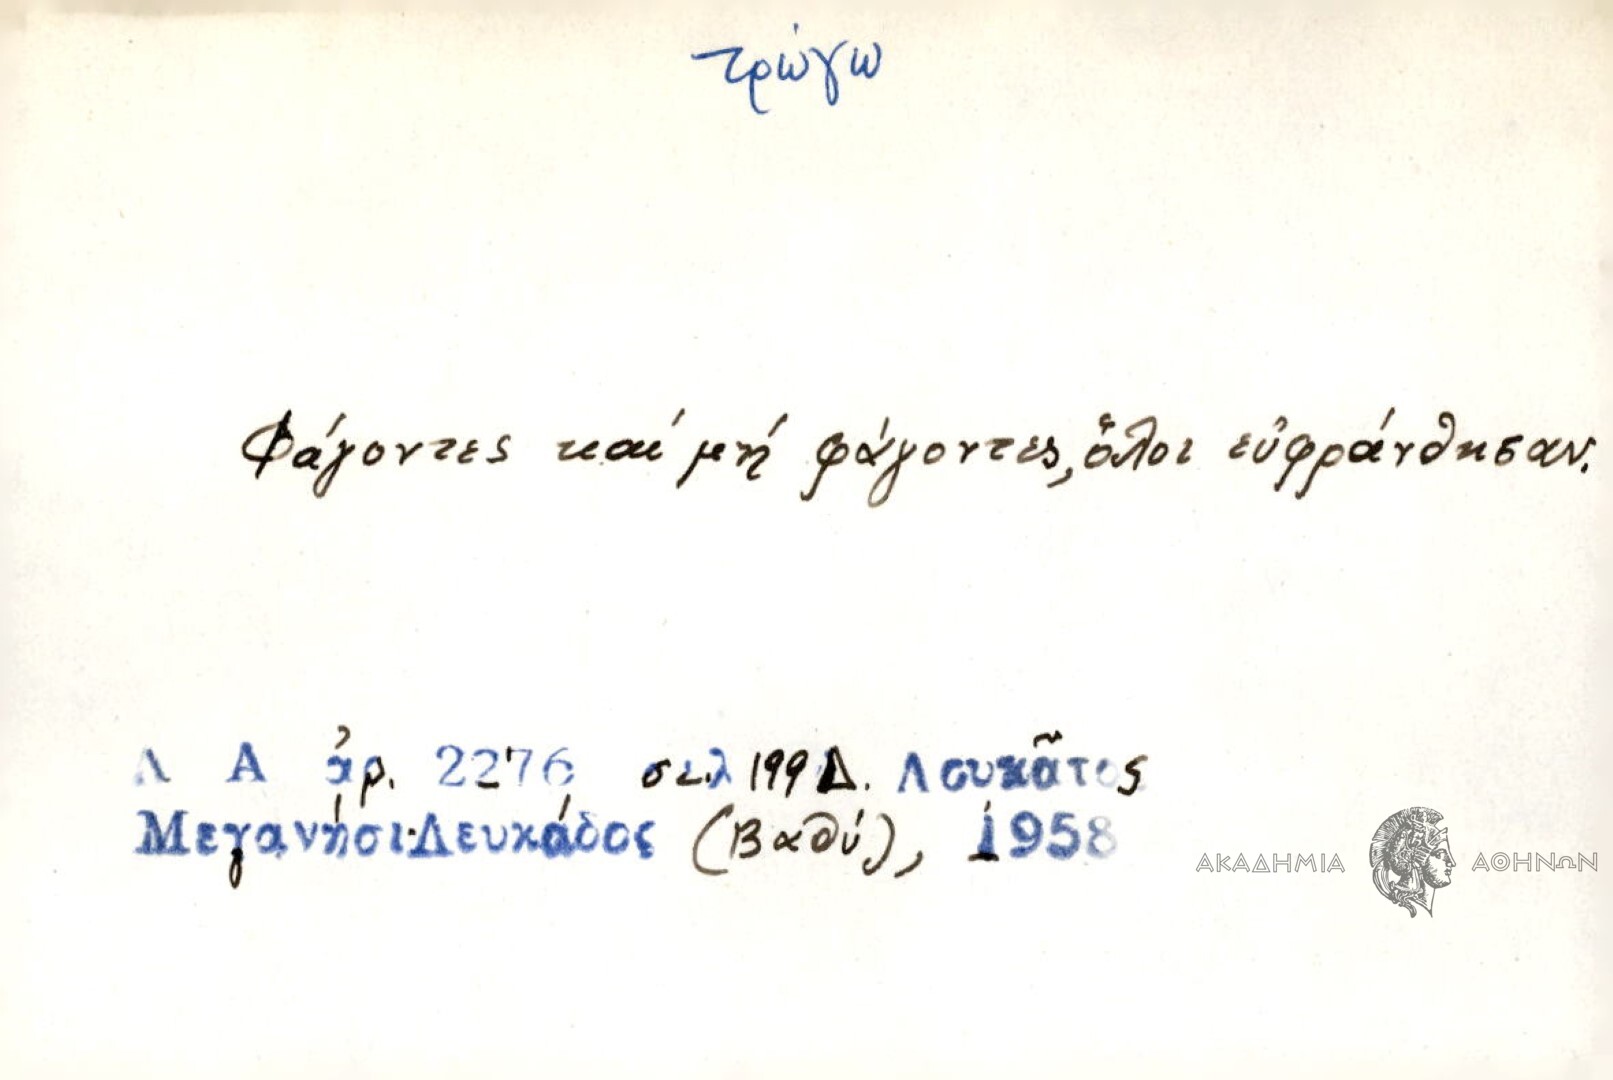 τρώγω
Φάγοντες καί μή φάγοντες, ὅλοι εὐφράνθησαν.
Λ Α ἀρ. 2276, σελ 199 Δ. Λουκᾶτος
Μεγανήσι Λευκάδος (Βαθύ), 1958
ΑΚΑΔΗΜΙΑ ΑΘΗΝΩΝ